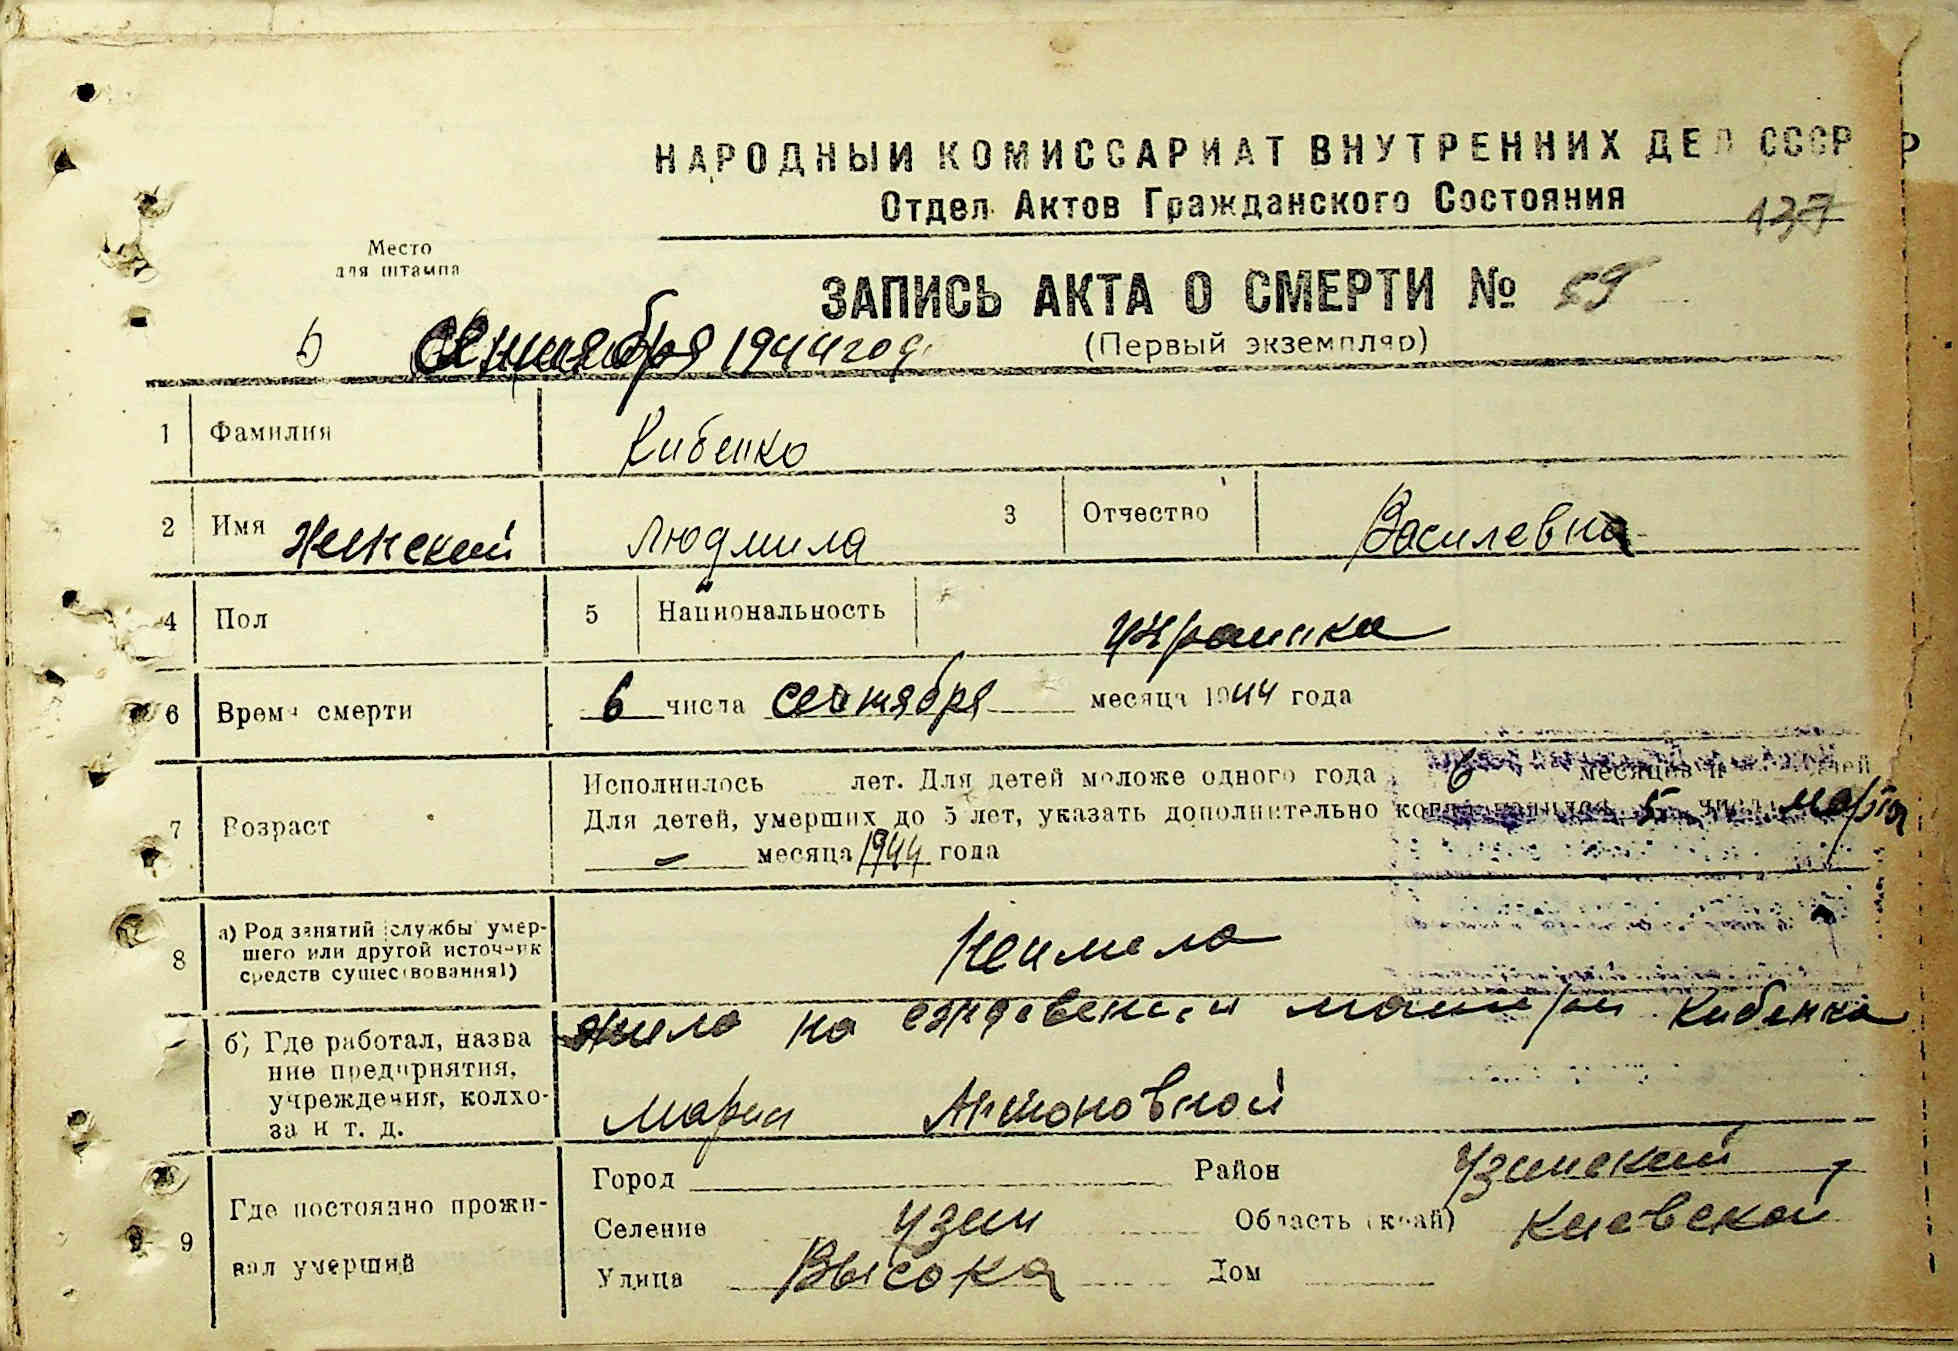 НАРОДНЫЙ КОМИССАРИАТ ВНУТРЕННИХ ДЕЛ СССР
Отдел Актов Гражданского Состояния
137
Место
для штампа
ЗАПИСЬ АКТА О СМЕРТИ № 59
(Первый экземпляр)
6 сентября 1944 год
1 Фамилия Кибенко
2 Имя Женский Людмила 3 Отчество Василевна
4 Пол 5 Национальность украинка
6 Время смерти 6 числа сентября месяца 1944 года
7 Возраст
Исполнилось лет. Для детей моложе одного года 6 месяцев и дней
Для детей, умерших до 5 лет, указать дополнительно когда родился 5 числа марта
месяца 1944 года
8 а) Род занятий (службы) умер-
шего или другой источник
средств существования1)
Неимела
б) Где работал, назва
ние предприятия,
учреждения, колхо-
за и т. д.
жила на Кибенко
Марии Антоновной
9 Где постоянно прожи-
вал умерший
Город Район Узинский
Селение Узин Область (край) Киевской
Улица Высока Дом